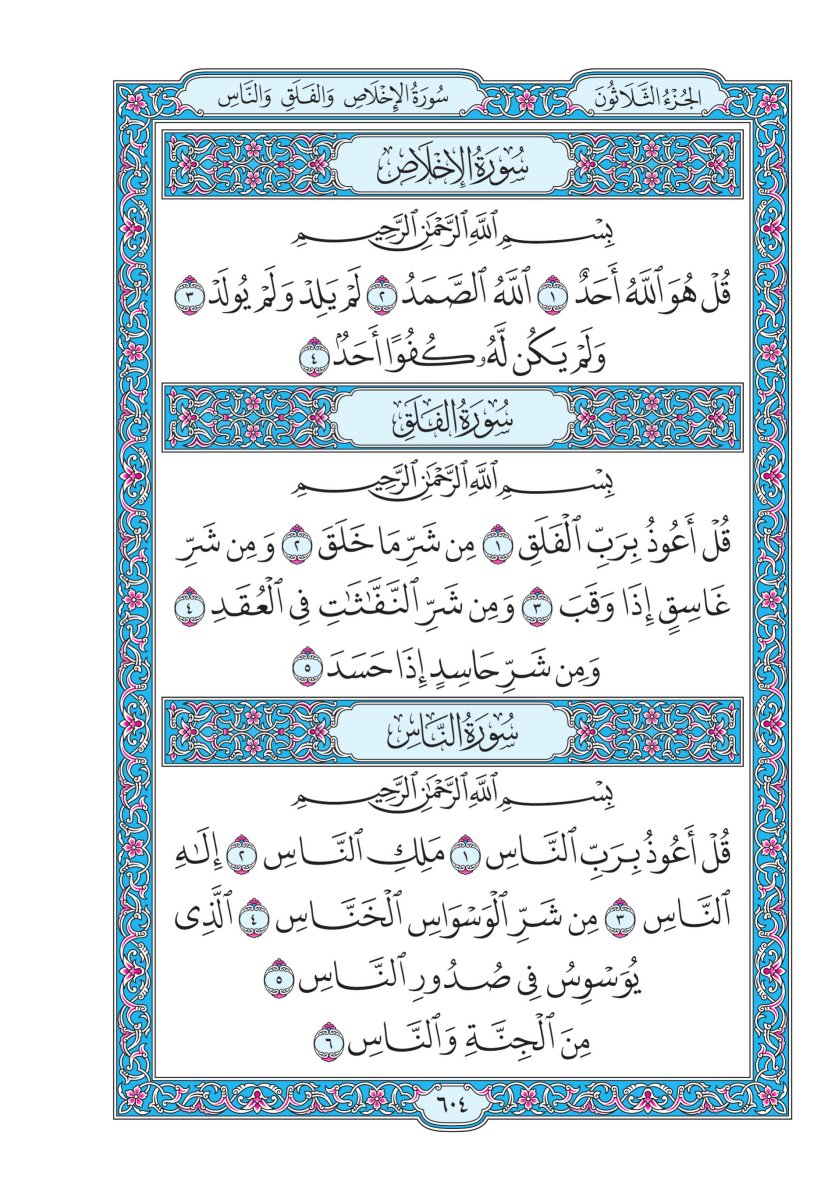 الجُزْءُ الثَّلَاثُونَ
سُورَةُ الإِخْلَاصِ وَالفَلَقِ وَالنَّاسِ
سُورَةُ الإِخْلَاصِ
بِسْمِ ٱللَّهِ ٱلرَّحْمَٰنِ ٱلرَّحِيمِ
قُلْ هُوَ ٱللَّهُ أَحَدٌ ١ ٱللَّهُ ٱلصَّمَدُ ٢ لَمْ يَلِدْ وَلَمْ يُولَدْ ٣
وَلَمْ يَكُن لَّهُۥ كُفُوًا أَحَدٌۢ ٤
سُورَةُ الفَلَقِ
بِسْمِ ٱللَّهِ ٱلرَّحْمَٰنِ ٱلرَّحِيمِ
قُلْ أَعُوذُ بِرَبِّ ٱلْفَلَقِ ١ مِن شَرِّ مَا خَلَقَ ٢ وَمِن شَرِّ
غَاسِقٍ إِذَا وَقَبَ ٣ وَمِن شَرِّ ٱلنَّفَّٰثَٰتِ فِى ٱلْعُقَدِ ٤
وَمِن شَرِّ حَاسِدٍ إِذَا حَسَدَ ٥
سُورَةُ النَّاسِ
بِسْمِ ٱللَّهِ ٱلرَّحْمَٰنِ ٱلرَّحِيمِ
قُلْ أَعُوذُ بِرَبِّ ٱلنَّاسِ ١ مَلِكِ ٱلنَّاسِ ٢ إِلَٰهِ
ٱلنَّاسِ ٣ مِن شَرِّ ٱلْوَسْوَاسِ ٱلْخَنَّاسِ ٤ ٱلَّذِى
يُوَسْوِسُ فِى صُدُورِ ٱلنَّاسِ ٥
مِنَ ٱلْجِنَّةِ وَٱلنَّاسِ ٦
٦٠٤